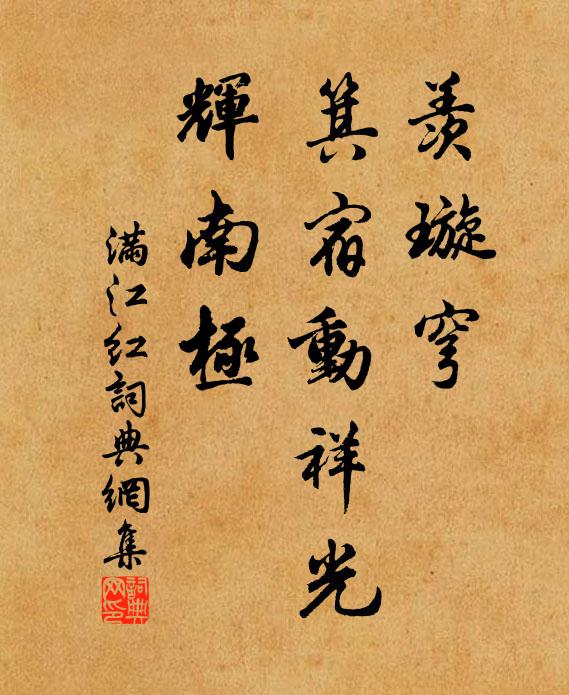 羨璇穹
箕宿動祥光
輝南極
滿江紅詞典網集
詞典網印